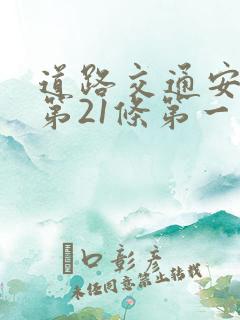 道路交通安
第21條第一
口彰彦
未經同意禁止轉載